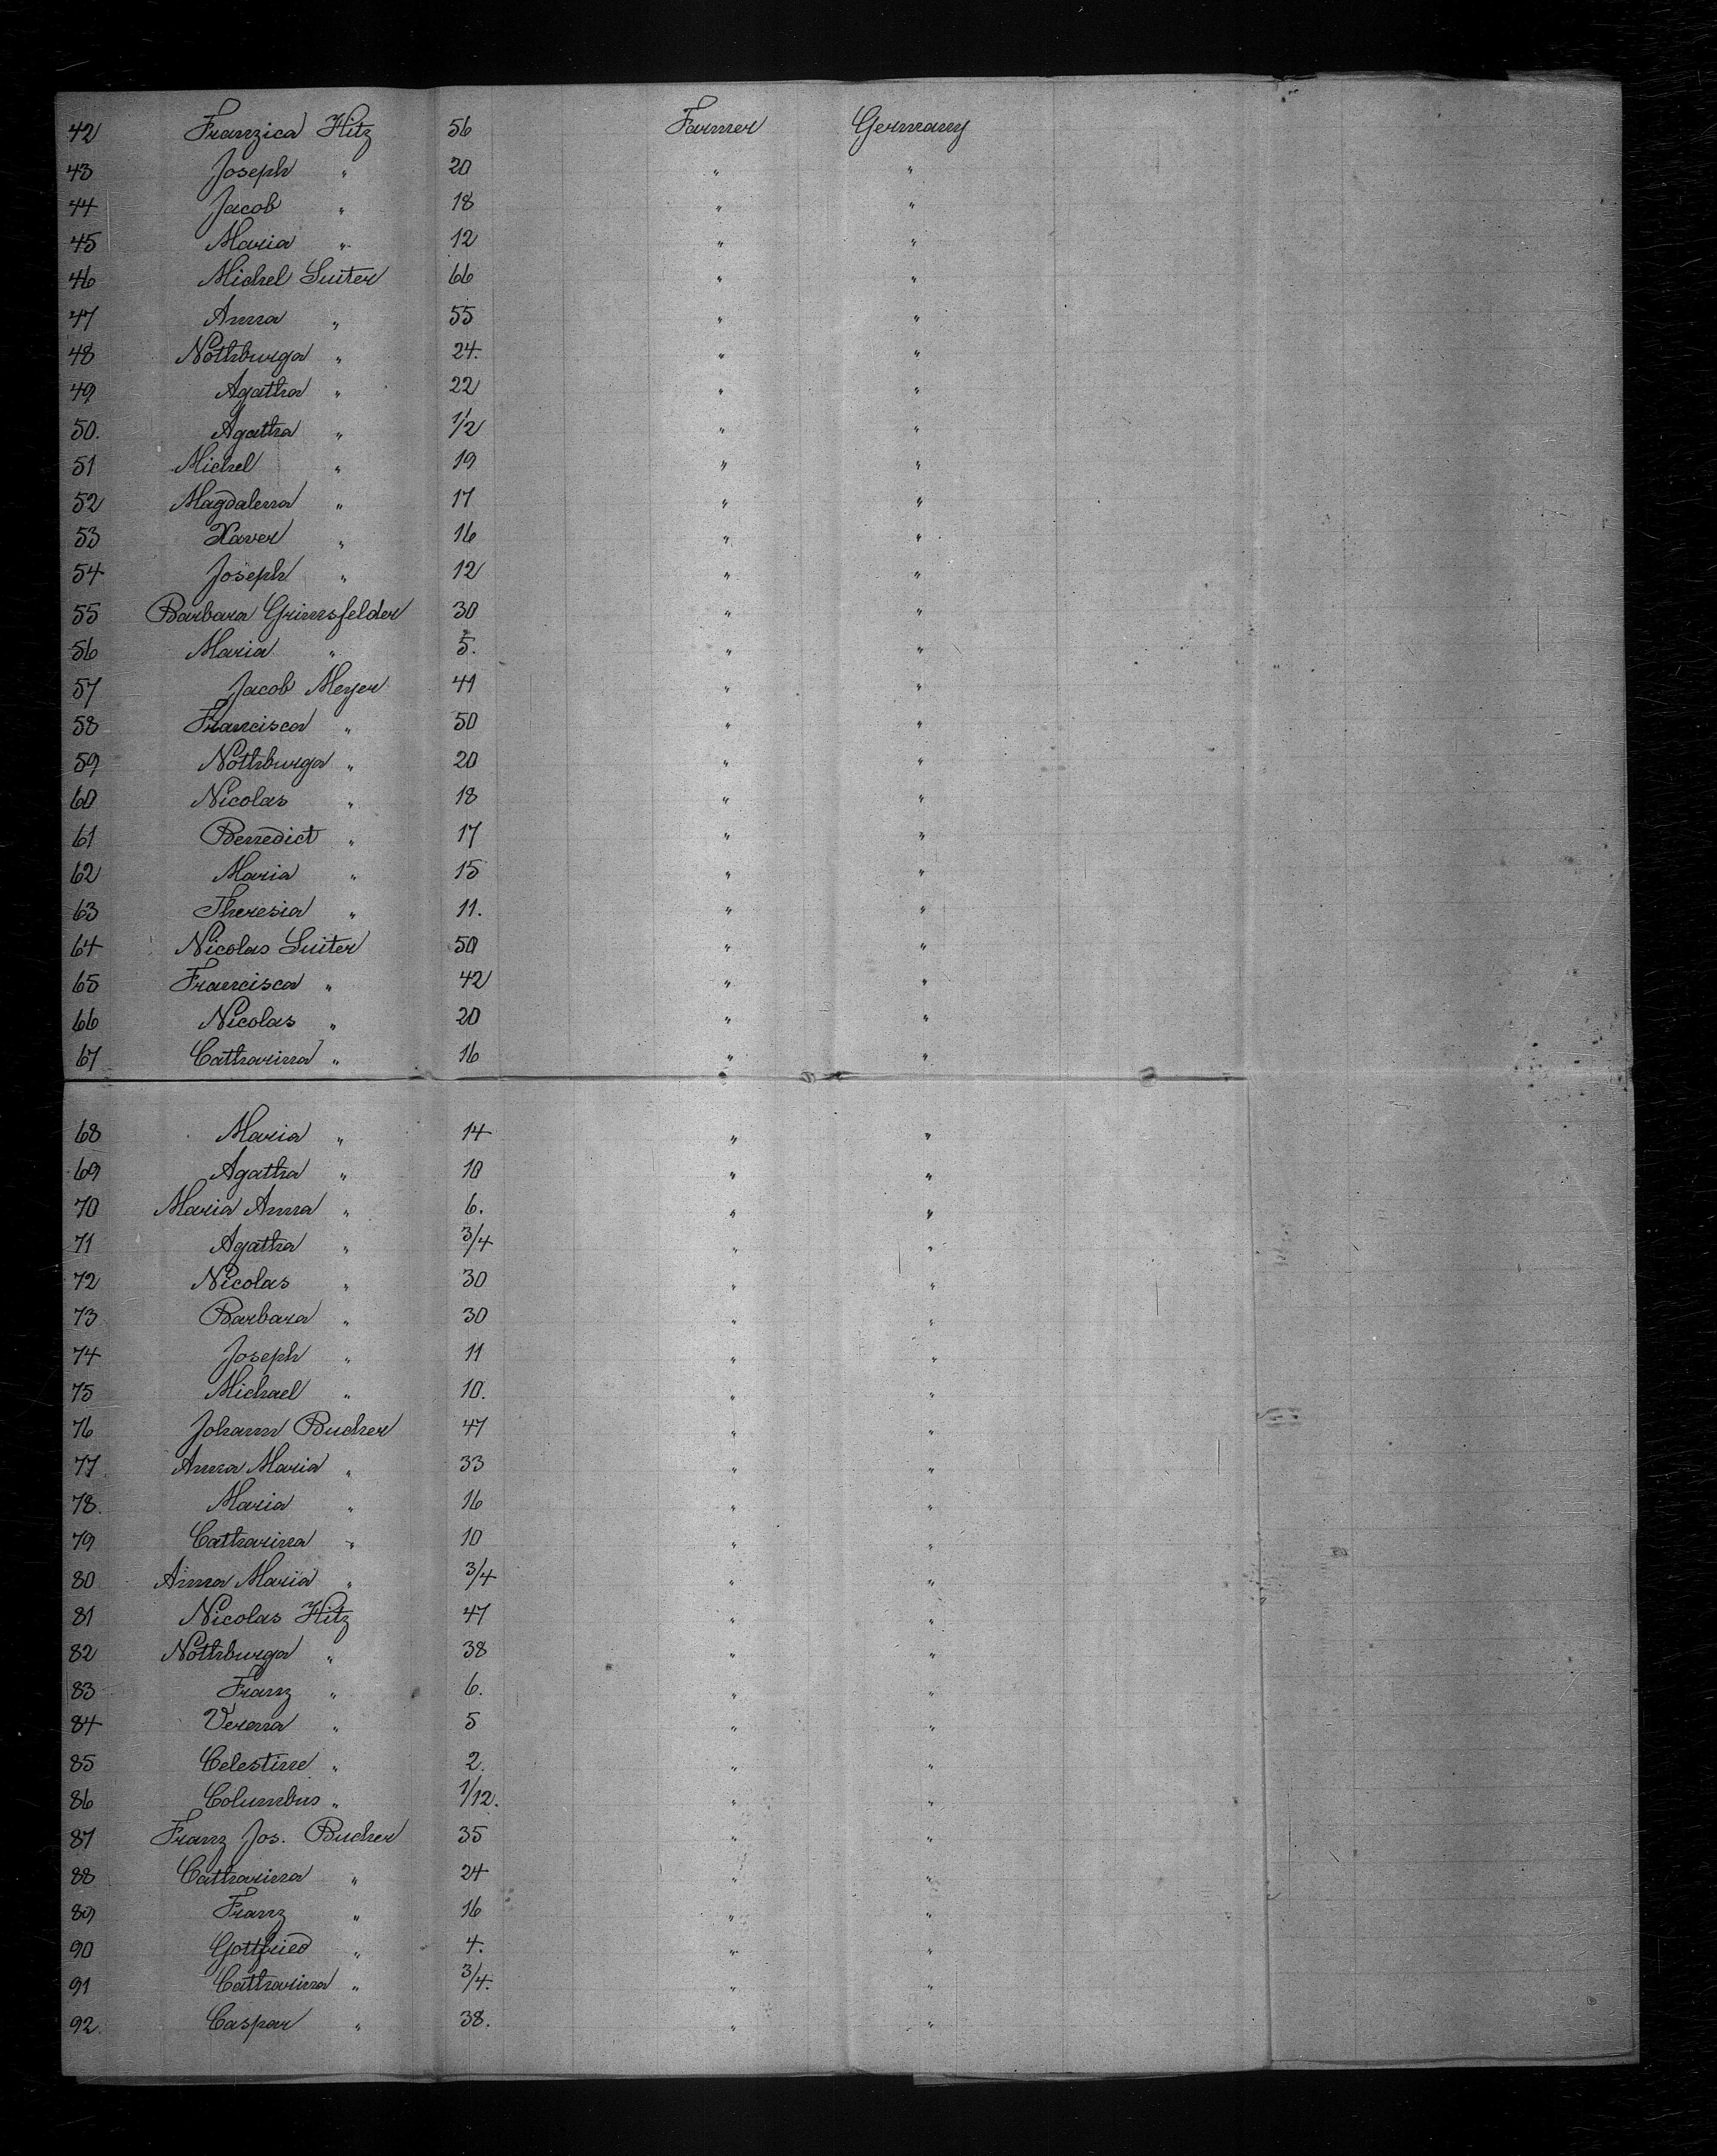 42 Franzica Hitz 56 Farmer Germany
43 Joseph " 20 " "
44 Jacob " 18 " "
45 Maria " 12 " "
46 Michel Suiter 66 " "
47 Anna " 55 " "
48 Nothburga " 24. " "
49 Agatha " 22 " "
50. Agatha " 1/2 " "
51 Michel " 19 " "
52 Magdalena " 17 " "
53 Xaver " 16 " "
54 Joseph " 12 " "
55 Barbara Grimsfelder 30 " "
56 Maria " 5. " "
57 Jacob Meyer 41 " "
58 Francisca " 50 " "
59 Nothburga " 20 " "
60 Nicolas " 18 " "
61 Benedict " 17 " "
62 Maria " 15 " "
63 Theresia " 11. " "
64 Nicolas Suiter 50 " "
65 Francisca " 42 " "
66 Nicolas " 20 " "
67 Catharina " 16 " "
68 Maria " 14 " "
69 Agatha " 10 " "
70 Maria Anna " 6. " "
71 Agatha " 3/4 " "
72 Nicolas " 30 " "
73 Barbara " 30 " "
74 Joseph " 11 " "
75 Michael " 10. " "
76 Johann Bucher 47 " "
77. Anna Maria " 33 " "
78. Maria " 16 " "
79 Catharina " 10 " "
80 Anna Maria " 3/4 " "
81 Nicolas Hitz 47 " "
82 Nothburga " 38 " "
83 Franz " 6. " "
84 Verena " 5 " "
85 Celestine " 2. " "
86 Columbus " 1/12. " "
87 Franz Jos. Bucher 35 " "
88 Catharina " 24 " "
89 Franz " 16 " "
90 Gottfried " 4. " "
91 Catharina " 3/4. " "
92. Caspar " 38. " "